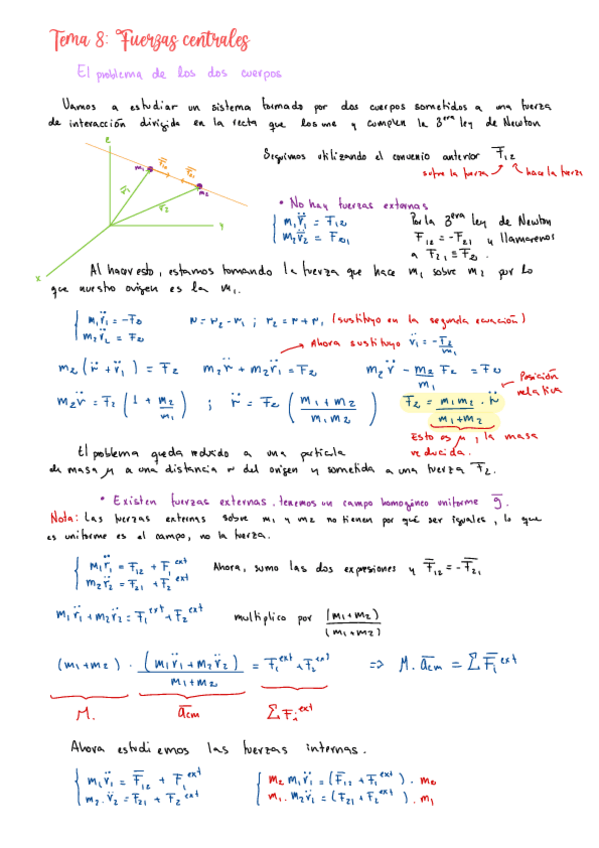 Tema 8: Fuerzas centrales
El problema de los dos cuerpos
Vamos a estudiar un sistema formado por dos cuerpos sometidos a una fuerza
de interacción dirigida en la recta que los une y cumplen la 3era ley de Newton
z
m₁
F̄₁₂
F̄₂₁
m₂
r̄₁
r̄₂
y
x
Seguimos utilizando el convenio anterior F̄₁₂
sobre la fuerza
hace la fuerza
• No hay fuerzas externas
m₁r̈₁ = F₁₂
m₂r̈₂ = F₂₁
Por la 3era ley de Newton
F₁₂ = -F₂₁ y llamaremos
a F₂₁ ≡ F₂.
Al hacer esto, estamos tomando la fuerza que hace m₁ sobre m₂ por lo
que nuestro origen es la m₁.
m₁r̈₁ = -F₂
m₂r̈₂ = F₂
r = r₂ - r₁ ; r₂ = r + r₁ (sustituyo en la segunda ecuación)
Ahora sustituyo r̈₁ = -F₂/m₁
m₂(r̈ + r̈₁) = F₂ m₂r̈ + m₂r̈₁ = F₂ m₂r̈ - m₂/m₁ F₂ = F₂
m₂r̈ = F₂(1 + m₂/m₁) ; r̈ = F₂(m₁ + m₂/m₁m₂) F₂ = m₁m₂/m₁+m₂ · r̈
Posición
relativa
Esto es μ, la masa
reducida.
El problema queda reducido a una partícula
de masa μ a una distancia r del origen y sometida a una fuerza F̄₂.
• Existen fuerzas externas, tenemos un campo homogéneo uniforme ḡ.
Nota: Las fuerzas externas sobre m₁ y m₂ no tienen por qué ser iguales, lo que
es uniforme es el campo, no la fuerza.
m₁r̈₁ = F₁₂ + F₁ext
m₂r̈₂ = F₂₁ + F₂ext
Ahora, sumo las dos expresiones y F̄₁₂ = -F̄₂₁
m₁r̈₁ + m₂r̈₂ = F₁ext + F₂ext multiplico por (m₁+m₂)/(m₁+m₂)
(m₁+m₂) · (m₁r̈₁ + m₂r̈₂)/m₁+m₂ = F₁ext + F₂ext => M · ācm = ΣF̄iext
M.
ācm
ΣFiext
Ahora estudiemos las fuerzas internas.
m₁r̈₁ = F̄₁₂ + F₁ext
m₂·r̈₂ = F₂₁ + F₂ext
m₂ m₁r̈₁ = (F̄₁₂ + F₁ext) · m₂
m₁ · m₂r̈₂ = (F₂₁ + F₂ext) · m₁